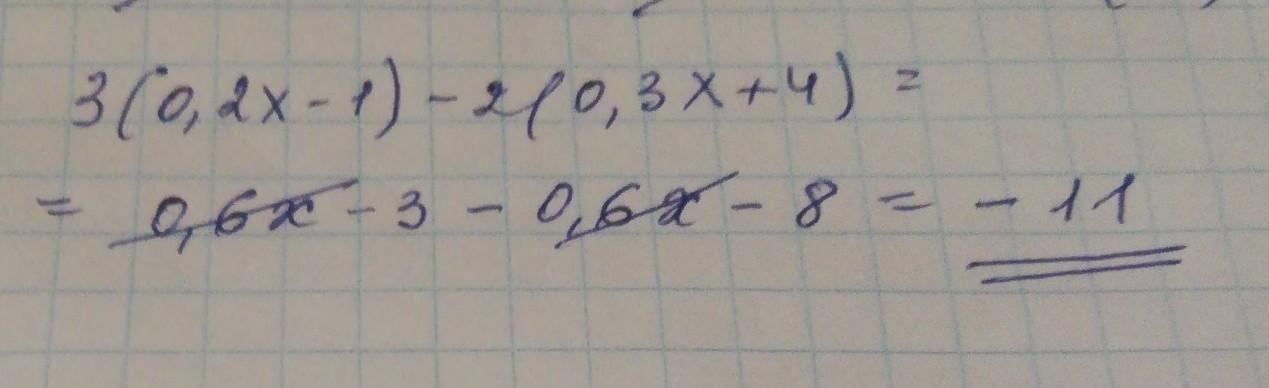 3(0,2x-1)-2(0,3x+4)=
= 0,6x-3-0,6x-8=-11